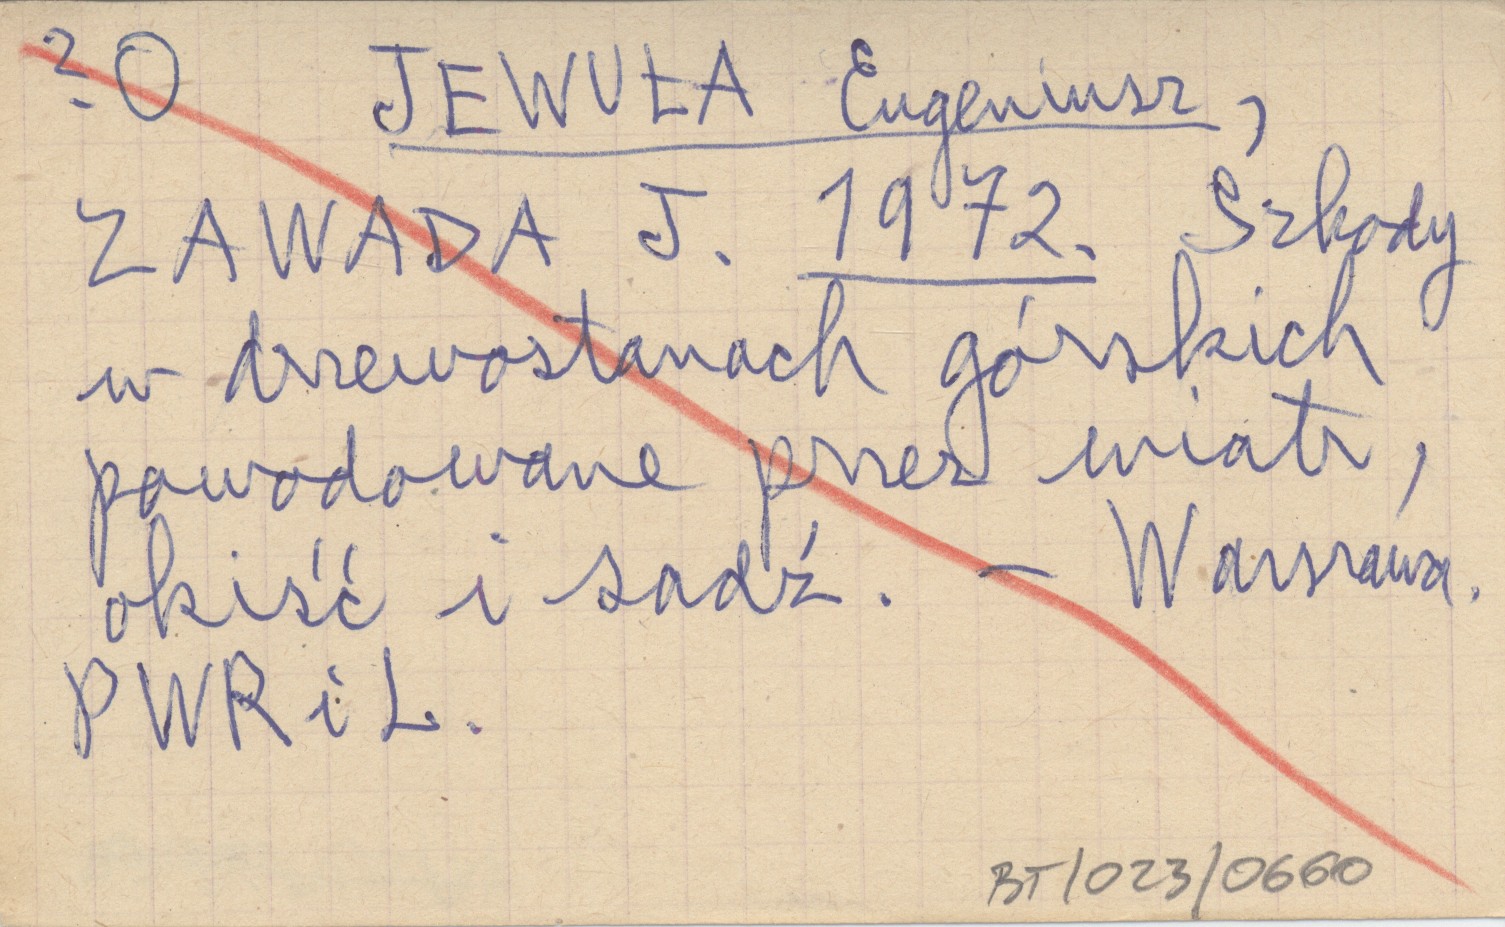 ? O JEWUŁA Eugeniusz,
ZAWADA J. 1972. Szkody
w drzewostanach górskich
powodowane przez wiatr,
okiść i sadź. – Warszawa.
PWRiL.
BT/023/0660